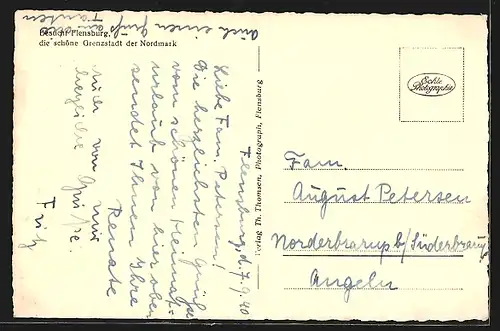 Besucht Flensburg,
die schöne Grenzstadt der Nordmark
Verlag Th. Thomsen, Photograph, Flensburg
Echte
Photographie
Flensburg, d. 7.9.40
Liebe Fam. Petersen!
Die herzlichsten Grüße
vom schönen Heimat-
urlaub von hier oben
sendet Ihnen Ihre
Renate
Auch von mir
herzliche Grüße.
Fritz
Auch einen Gruß
an
Tanten
Fam.
August Petersen
Norderbrarup b/ Süderbrarup
Angeln